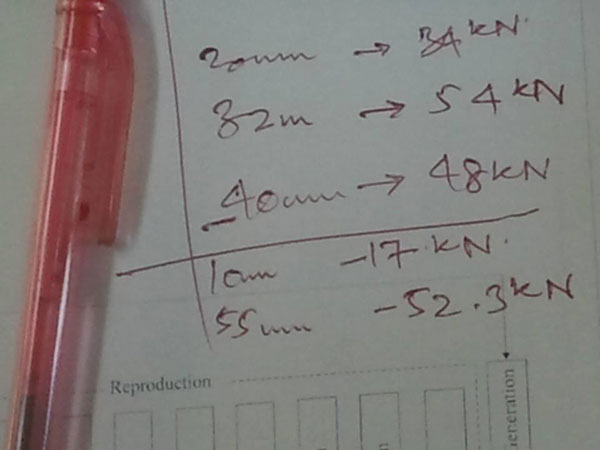 20mm → 34 kN
32m → 54 kN
40mm → 48 kN
10mm -17 kN.
55mm -52.3 kN
Reproduction